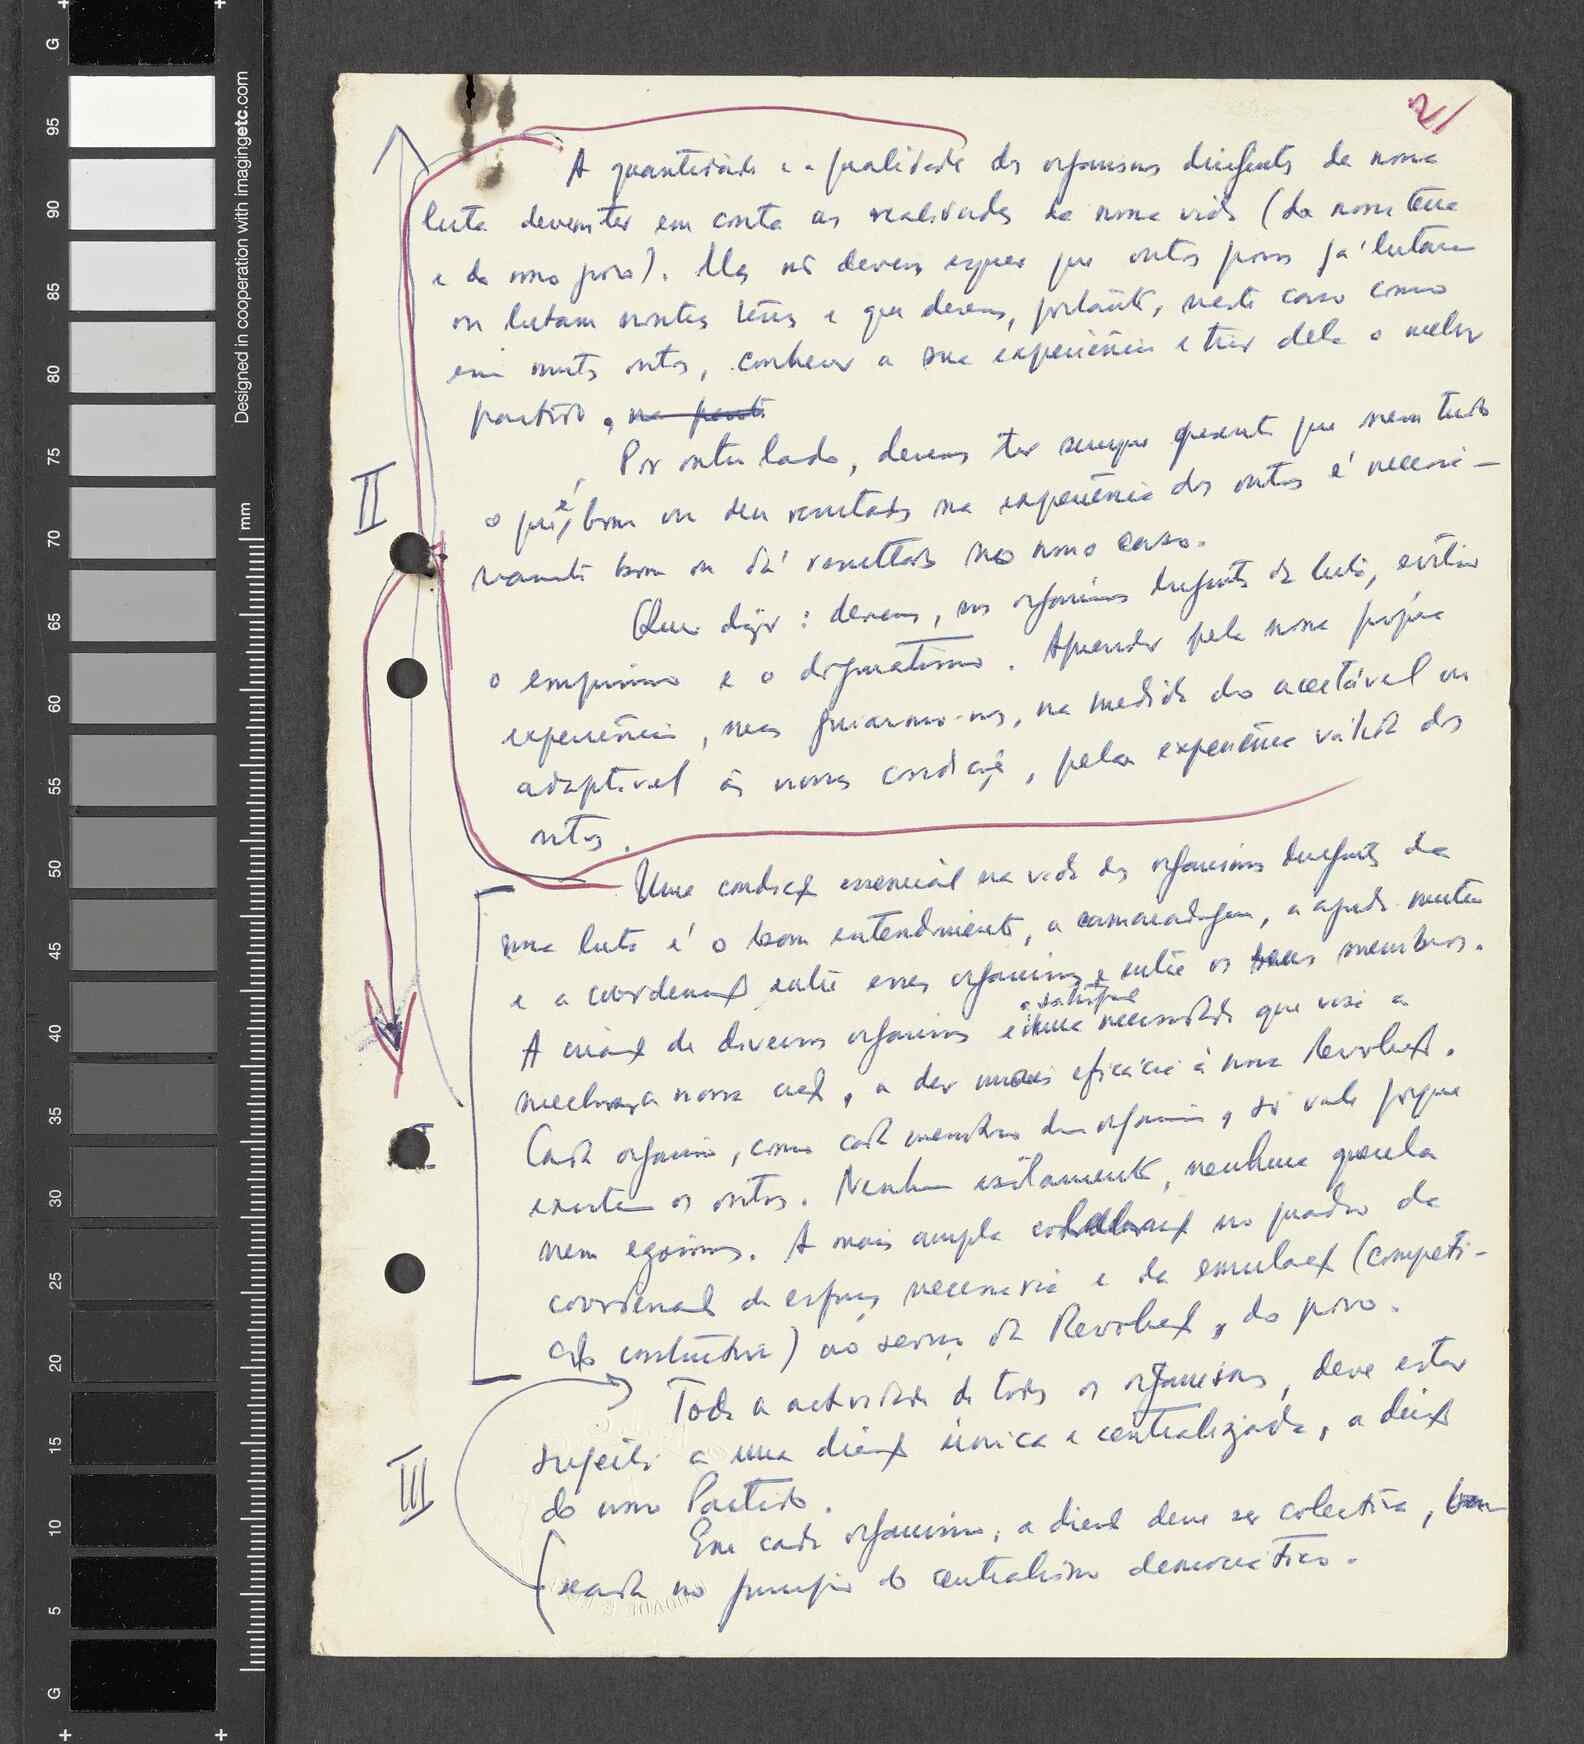 21
A quantidade e a qualidade dos organismos dirigentes da nossa
luta devem ter em conta as realidades da nossa vida (da nossa terra
e do nosso povo). Mas não devemos esquecer que outros povos já lutaram
ou lutam noutras terras e que devemos, portanto, neste caso como
em muitos outros, conhecer a sua experiência e tirar dela o melhor
partido, na parte
Por outro lado, devemos ter sempre presente que nem tudo
o que é bom ou deu resultados na experiência dos outros é necessa-
riamente bom ou dá resultados no nosso caso.
II
Quer dizer: devemos, nos organismos dirigentes da luta, evitar
o empirismo e o dogmatismo. Aprender pela nossa própria
experiência, mas guiarmo-nos, na medida do aceitável ou
adaptável às nossas condições, pela experiência válida dos
outros.
Uma condição essencial na vida dos organismos dirigentes da
nossa luta é o bom entendimento, a camaradagem, a ajuda mútua
e a coordenação entre esses organismos e entre os seus membros.
A criação de diversos organismos é uma necessidade que visa a
melhorar a nossa acção, a dar mais eficácia à nossa Revolução.
Cada organismo, como cada membro dum organismo, só vale porque
existem os outros. Nenhum isolamento, nenhuma querela
nem egoismos. A mais ampla colaboração no quadro da
coordenação de esforços necessária e da emulação (competi-
ção construtiva) ao serviço da Revolução, do povo.
Toda a actividade de todos os organismos, deve estar
sujeita a uma direcção única e centralizada, a direcção
III
do nosso Partido.
Em cada organismo, a direcção deve ser colectiva, ba-
seada no princípio do centralismo democrático.
G
95
90
85
80
75
70
65
60
55
50
45
40
35
30
25
20
15
10
5
G
mm
Designed in cooperation with imagingetc.com